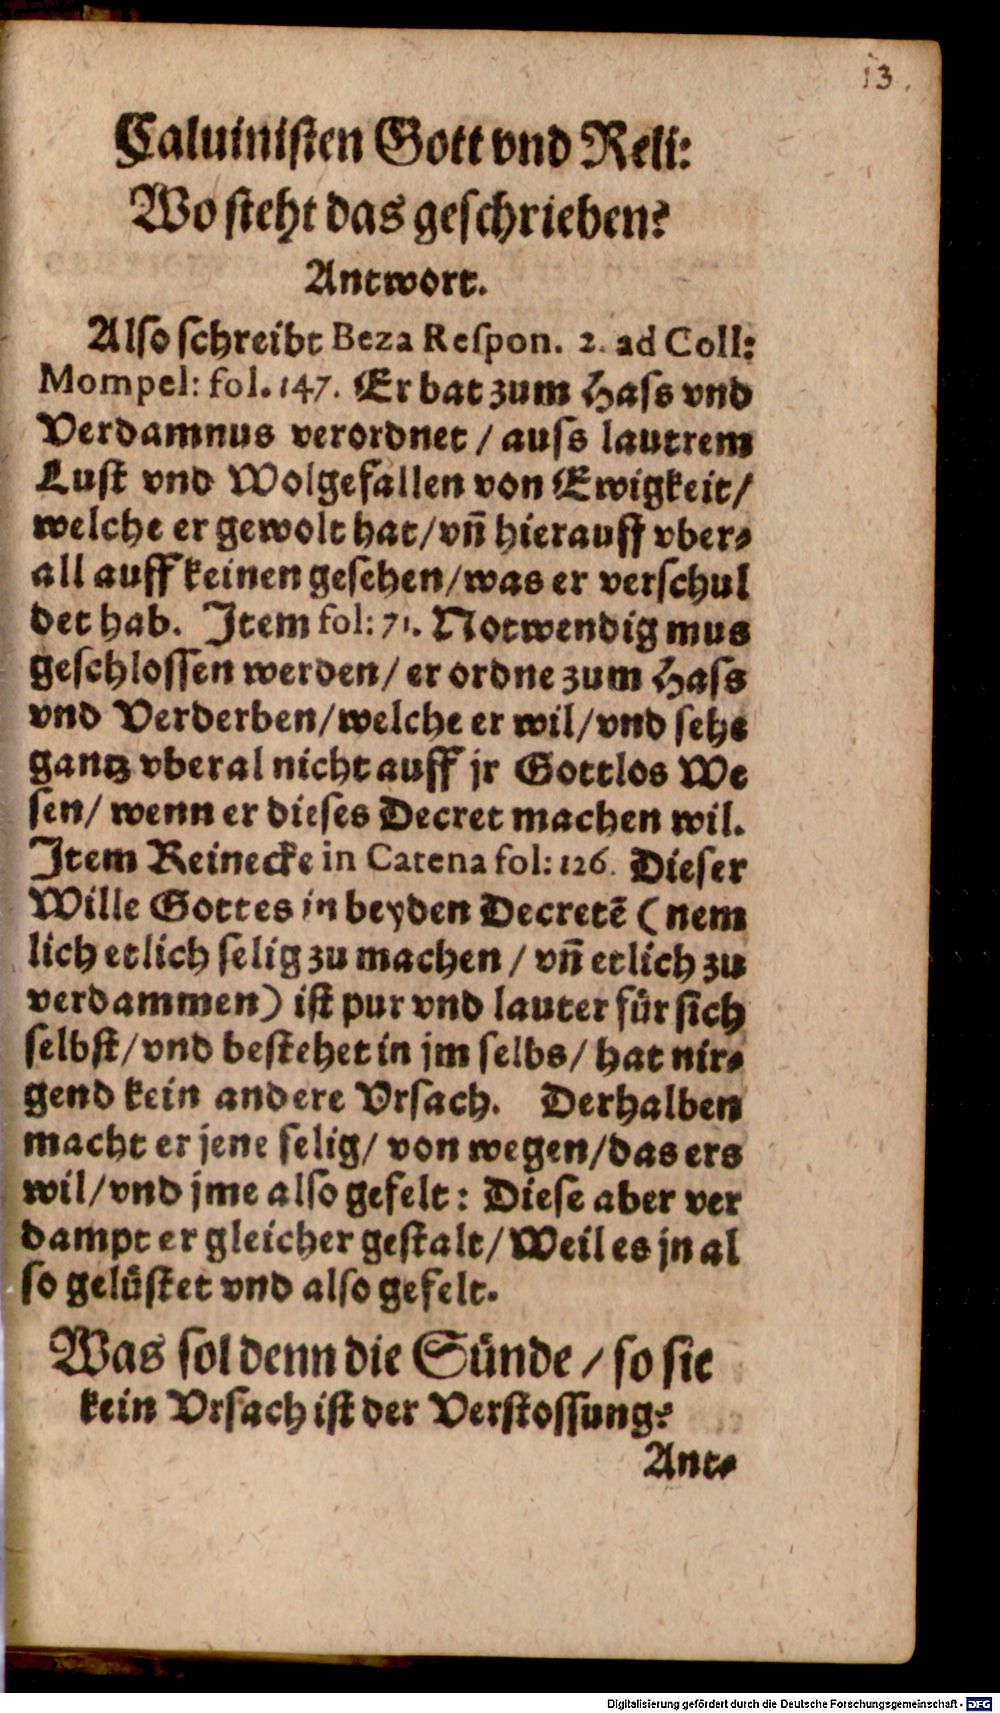 13.
Caluinisten Gott vnd Reli:
Wo steht das geschrieben?
Antwort.
Also schreibt Beza Respon. 2. ad Coll:
Mompel: fol. 147. Er hat zum Hass vnd
Verdamnus verordnet / auss lautrem
Lust vnd Wolgefallen von Ewigkeit /
welche er gewolt hat / vn̄ hierauff vber⸗
all auff keinen gesehen / was er verschul
det hab. Item fol: 71. Notwendig mus
geschlossen werden / er ordne zum Hass
vnd Verderben / welche er wil / vnd sehe
gantz vberal nicht auff jr Gottlos We
sen / wenn er dieses Decret machen wil.
Item Reinecke in Catena fol: 126. Dieser
Wille Gottes in beyden Decretē (nem
lich etlich selig zu machen / vn̄ etlich zu
verdammen) ist pur vnd lauter für sich
selbst / vnd bestehet in jm selbs / hat nir⸗
gend kein andere Vrsach. Derhalben
macht er jene selig / von wegen / das ers
wil / vnd jme also gefelt : Diese aber ver
dampt er gleicher gestalt / Weil es jn al
so gelüstet vnd also gefelt.
Was sol denn die Sünde / so sie
kein Vrsach ist der Verstossung?
Ant⸗
Digitalisierung gefördert durch die Deutsche Forschungsgemeinschaft - DFG